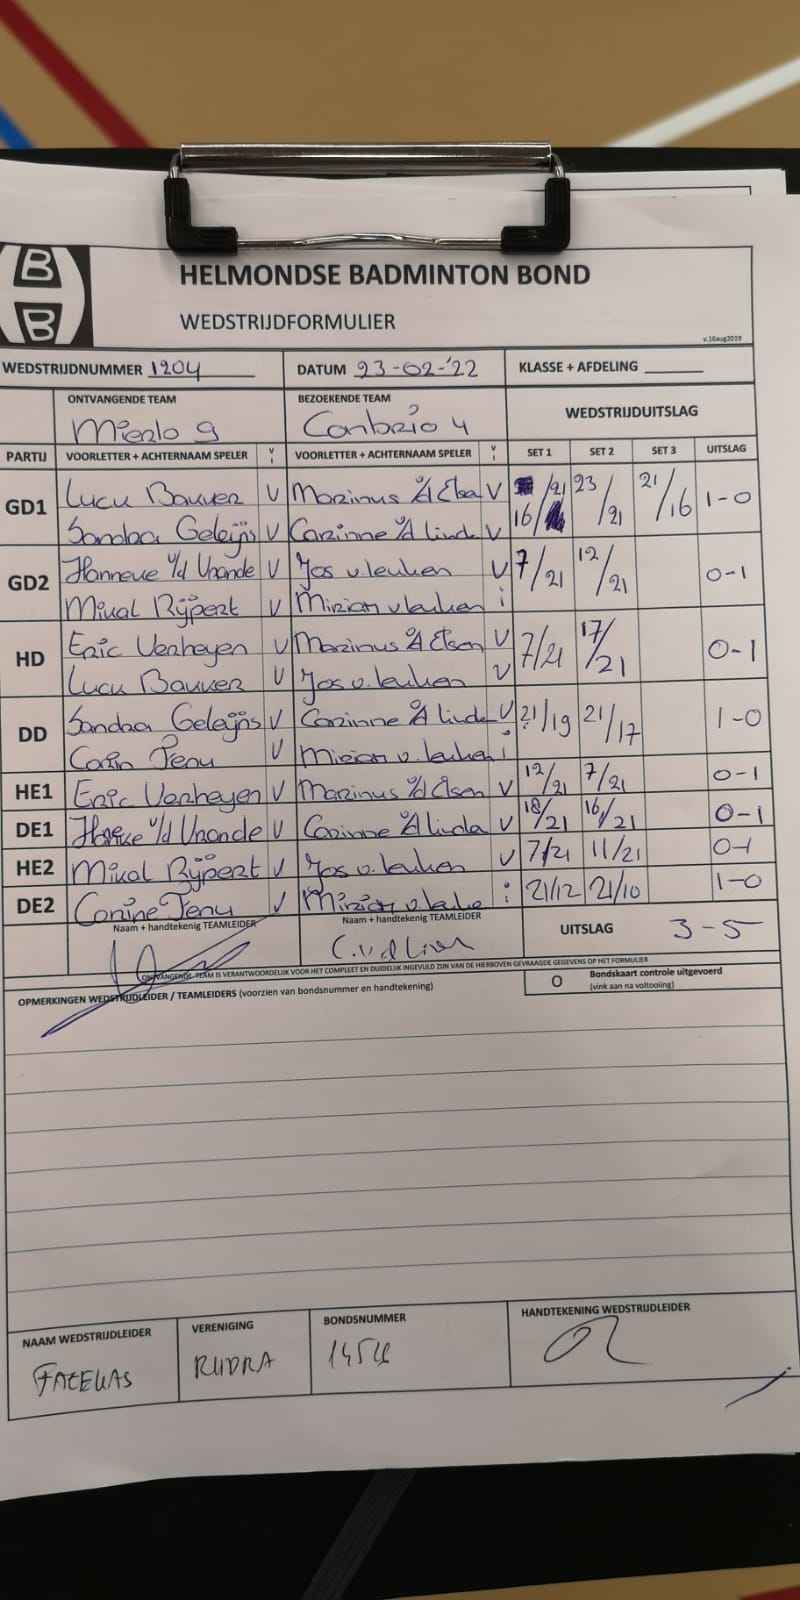 B
B
HELMONDSE BADMINTON BOND
WEDSTRIJDFORMULIER
v.16aug2019
WEDSTRIJDNUMMER 1204 DATUM 23-02-'22 KLASSE + AFDELING
ONTVANGENDE TEAM BEZOEKENDE TEAM WEDSTRIJDUITSLAG
Mierlo 9 Conbrio 4
PARTIJ VOORLETTER + ACHTERNAAM SPELER V I VOORLETTER + ACHTERNAAM SPELER V I SET 1 SET 2 SET 3 UITSLAG
GD1 Lucu Bouwer V Marinus v/d Elsen V 16/21 23/21 21/16 1-0
Sandra Geleijns V Corinne v/d Linde V
GD2 Hanneve v/d Vrande V Jos v. leuken V 7/21 12/21 0-1
Mikal Rijpert V Mirian v leuken i
HD Eric Verheyen V Marinus v/d Elsen V 7/21 17/21 0-1
Lucu Bouwer V Jos v. leuken V
DD Sandra Geleijns V Corinne v/d linde V 21/19 21/17 1-0
Corin Penu V Mirian v. leuken i
HE1 Eric Verheyen V Marinus v/d Elsen V 12/21 7/21 0-1
DE1 v/d Vrande V Corinne v/d linde V 18/21 16/21 0-1
HE2 Mikal Rijpert V Jos v. leuken V 7/21 11/21 0-1
DE2 Corine Penu V Mirian v leuke i 21/12 21/10 1-0
Naam + handtekenig TEAMLEIDER Naam + handtekenig TEAMLEIDER UITSLAG 3-5
C.v.d Linden
ONTVANGENDE TEAM IS VERANTWOORDELIJK VOOR HET COMPLEET EN DUIDELIJK INGEVULD ZIJN VAN DE HIERBOVEN GEVRAAGDE GEGEVENS OP HET FORMULIER
OPMERKINGEN WEDSTRIJDLEIDER / TEAMLEIDERS (voorzien van bondsnummer en handtekening) O Bondskaart controle uitgevoerd
(vink aan na voltooiing)
NAAM WEDSTRIJDLEIDER VERENIGING BONDSNUMMER HANDTEKENING WEDSTRIJDLEIDER
RUDRA